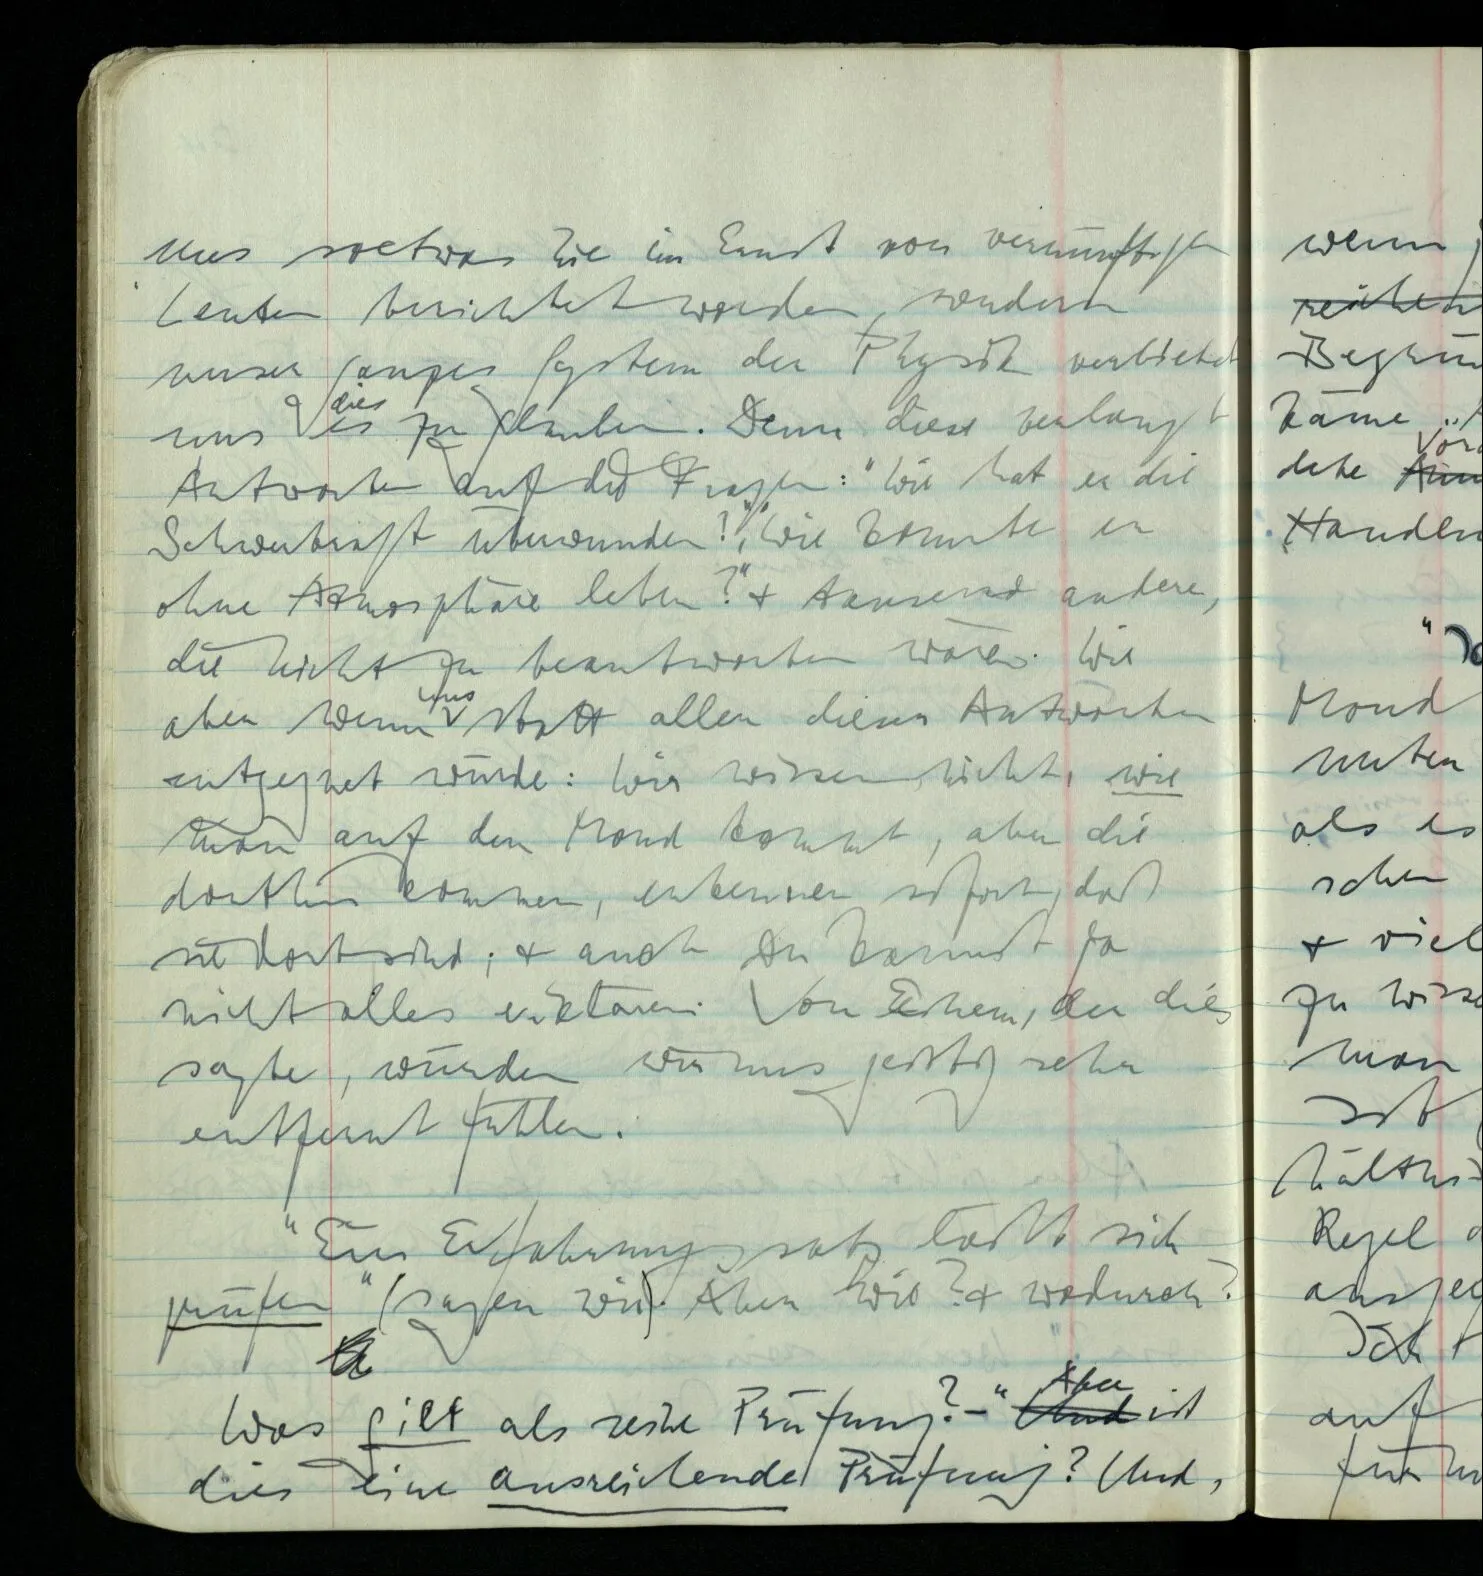 uns soetwas nie im Ernst von vernünftigen
Leuten berichtet worden, sondern
unser ganzes System der Physik verbietet
uns dies es zu glauben. Denn diese verlangt
Antworten auf die Fragen: "Wie hat er die
Schwerkraft überwunden?", "Wie konnte er
ohne Atmosphäre leben?" + tausend andere,
die nicht zu beantworten wären. Wie
aber wenn uns statt allen diesen Antworten
entgegnet würde: Wir wissen nicht, wie
man auf den Mond kommt, aber die
dorthin kommen, erkennen sofort, daß
sie dort sind; + auch du kannst ja
nicht alles erklären. Von Einem, der dies
sagte, würden wir uns geistig sehr
entfernt fühlen.
"Ein Erfahrungssatz läßt sich
prüfen" (sagen wir). Aber wie? + wodurch?
Was gilt als seine Prüfung? – "Aber
Und ist
dies eine ausreichende Prüfung? Und,
wenn
Begrün
käme
Handeln
Mond
unten
als es
schen
+ viel
zu wisse
man
ist
hältnis-
Regel
auf